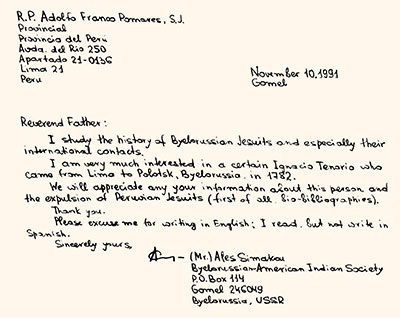 R.P. Adolfo Franco Pomares, S.J.
Provincial
Provincia del Perú
Avda. del Rio 250
Apartado 21-0136
Lima 21
Peru
November 10,1991
Gomel
Reverend Father:
I study the history of Byelorussian Jesuits and especially their
international contacts.
I am very much interested in a certain Ignacio Tenorio who
came from Lima to Polotsk, Byelorussia, in 1782.
We will appreciate any your information about this person and
the expulsion of Peruvian Jesuits (first of all, bio-bibliographies).
Thank you.
Please excuse me for writing in English; I read, but not write in
Spanish.
Sincerely yours,
(Mr.) Ales Simakou
Byelorussian-American Indian Society
P.O.Box 114
Gomel 246049
Byelorussia, USSR